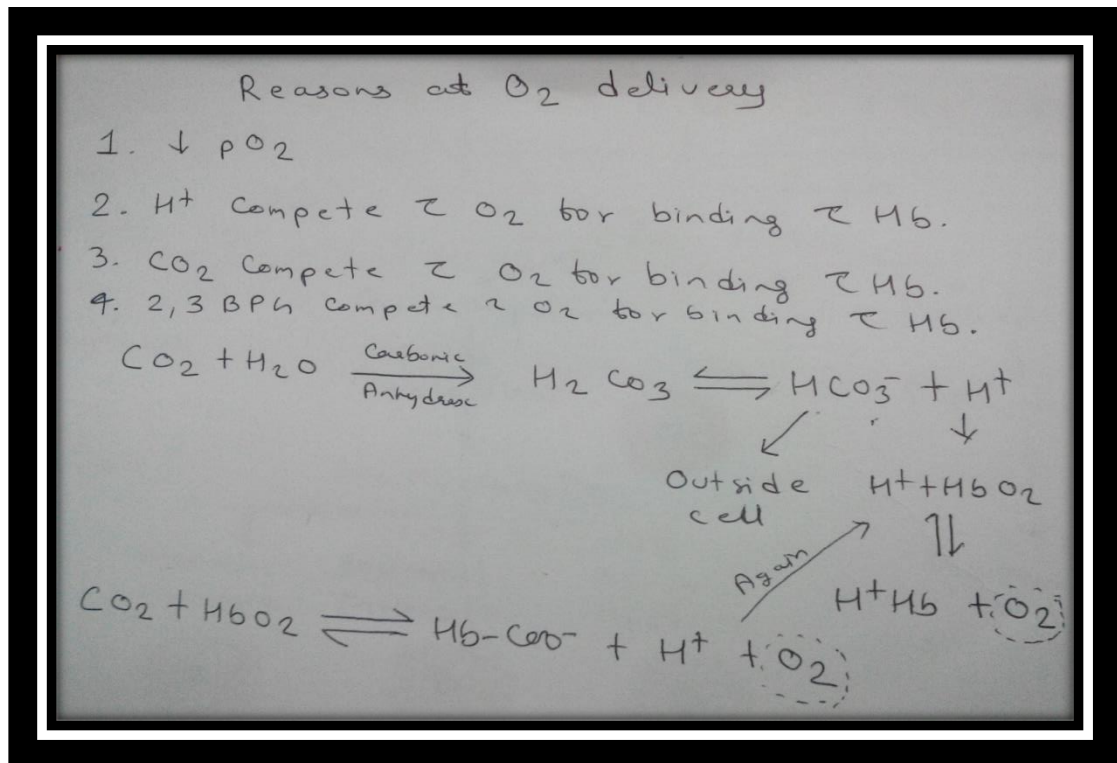 Reasons at O2 delivery
1. ↓ pO2
2. H+ Compete c̄ O2 for binding c̄ Hb.
3. CO2 Compete c̄ O2 for binding c̄ Hb.
4. 2,3 BPG compete c̄ O2 for binding c̄ Hb.
CO2 + H2O Carbonic Anhydrase → H2CO3 ⇌ HCO3- + H+
↙ ↓
Outside cell
H+ + HbO2
⇅
H+Hb + O2
CO2 + HbO2 ⇌ Hb-Coo- + H+ + O2
Again